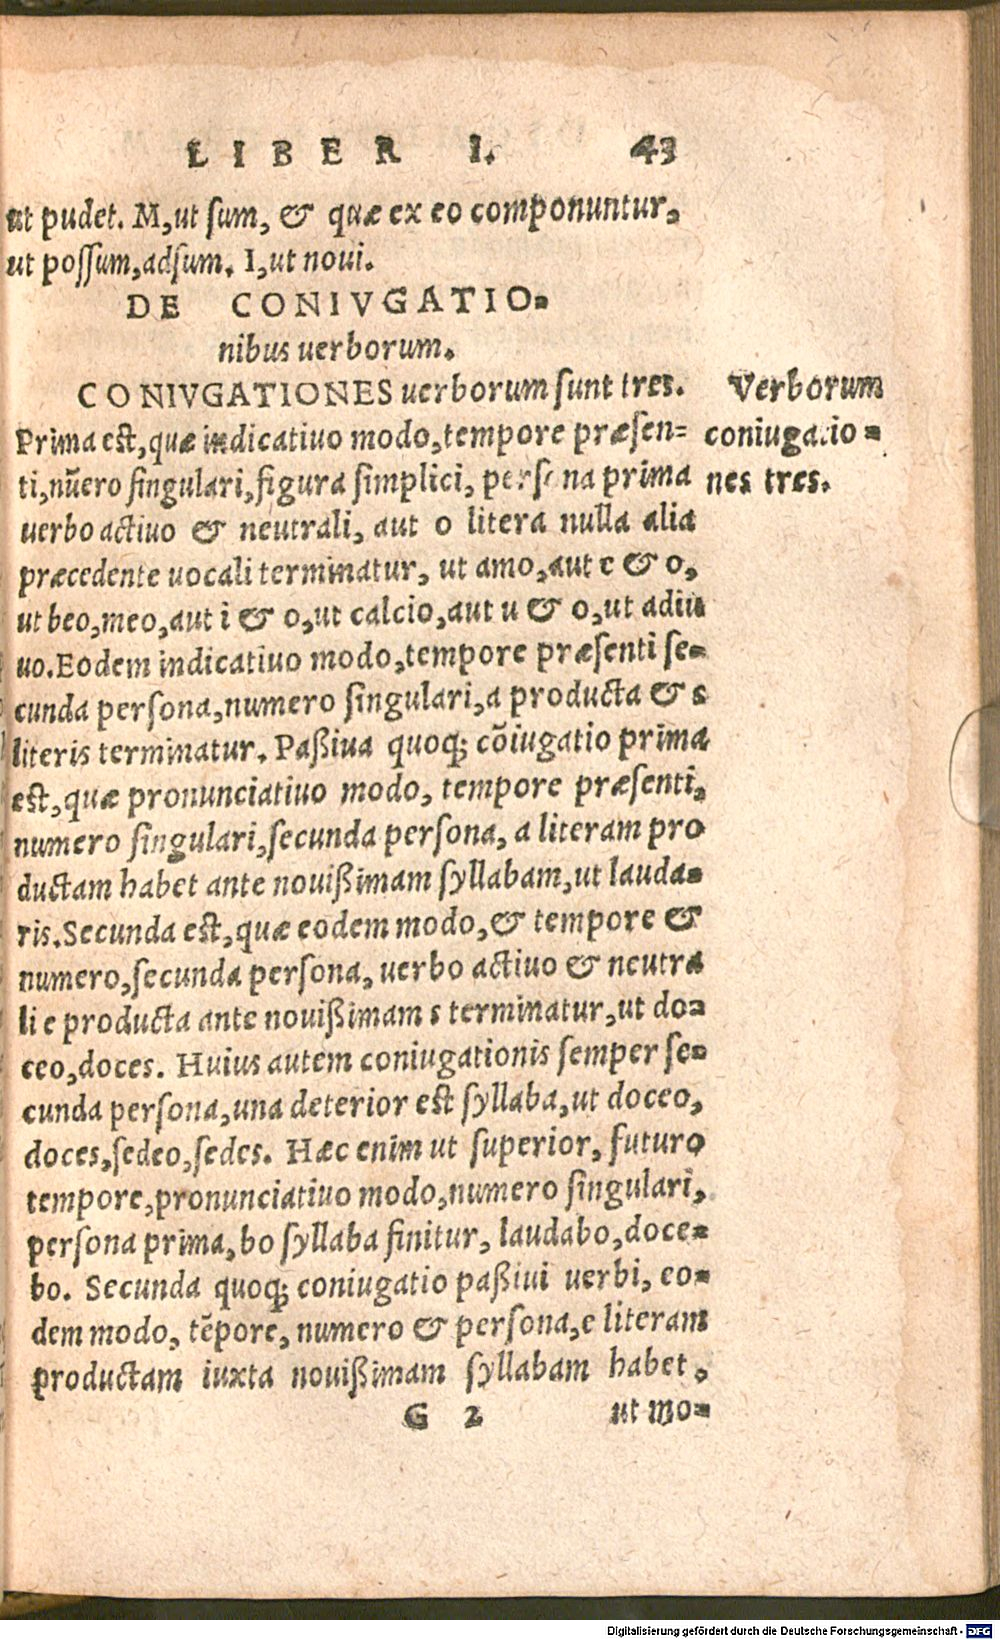 LIBER I. 43
ut pudet. M, ut sum, & quæ ex eo componuntur,
ut possum, adsum. I, ut noui.
DE CONIVGATIO-
nibus uerborum.
CONIVGATIONES uerborum sunt tres.
Verborum
coniugatio-
nes tres.
Prima est, quæ indicatiuo modo, tempore præsen-
ti, nūero singulari, figura simplici, persona prima
uerbo actiuo & neutrali, aut o litera nulla alia
præcedente uocali terminatur, ut amo, aut e & o,
ut beo, meo, aut i & o, ut calcio, aut u & o, ut adiu
uo. Eodem indicatiuo modo, tempore præsenti se-
cunda persona, numero singulari, a producta & s
literis terminatur. Paßiua quoq; cōiugatio prima
est, quæ pronunciatiuo modo, tempore præsenti,
numero singulari, secunda persona, a literam pro
ductam habet ante nouißimam syllabam, ut lauda-
ris. Secunda est, quæ eodem modo, & tempore &
numero, secunda persona, uerbo actiuo & neutra
li e producta ante nouißimam s terminatur, ut do-
ceo, doces. Huius autem coniugationis semper se-
cunda persona, una deterior est syllaba, ut doceo,
doces, sedeo, sedes. Hæc enim ut superior, futuro
tempore, pronunciatiuo modo, numero singulari,
persona prima, bo syllaba finitur, laudabo, doce-
bo. Secunda quoq; coniugatio paßiui uerbi, eo-
dem modo, tēpore, numero & persona, e literam
productam iuxta nouißimam syllabam habet,
G 2 ut mo-
Digitalisierung gefördert durch die Deutsche Forschungsgemeinschaft - DFG